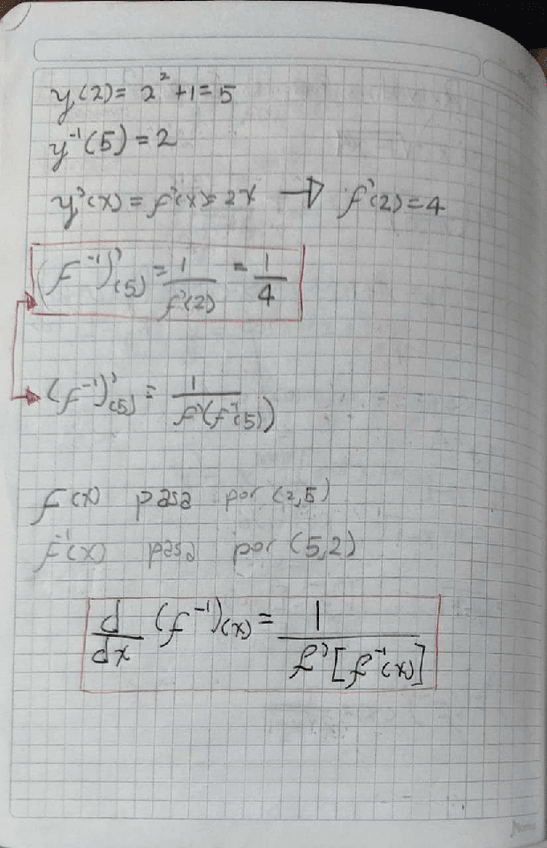 y(2)= 2² +1=5
y⁻¹(5)=2
y'(x)= f'(x)= 2x → f'(2)=4
(f⁻¹)'(5) = 1/f'(2) = 1/4
(f⁻¹)'(5) = 1/f'(f⁻¹(5))
f(x) pasa por (2,5)
f⁻¹(x) pasa por (5,2)
d/dx (f⁻¹)(x) = 1/f'[f⁻¹(x)]